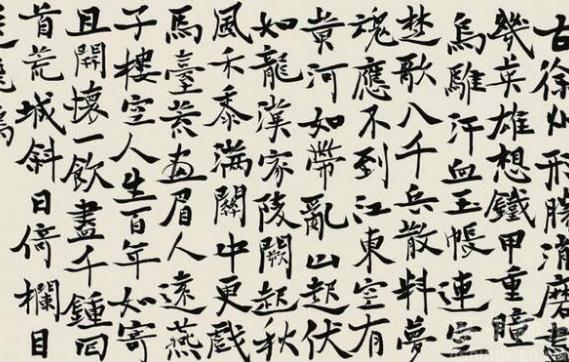 古徐州形勝消磨盡
幾英雄想鐵甲重瞳
烏騅汗血玉帳連空
楚歌八千兵散料夢
魂應不到江東空有
黄河如帶亂山起伏
如龍漢家陵闕起秋
風禾黍滿關中更戲
馬臺荒畫眉人遠燕
子樓空人生百年如寄
且開懷一飲盡千鍾回
首荒城斜日倚欄目